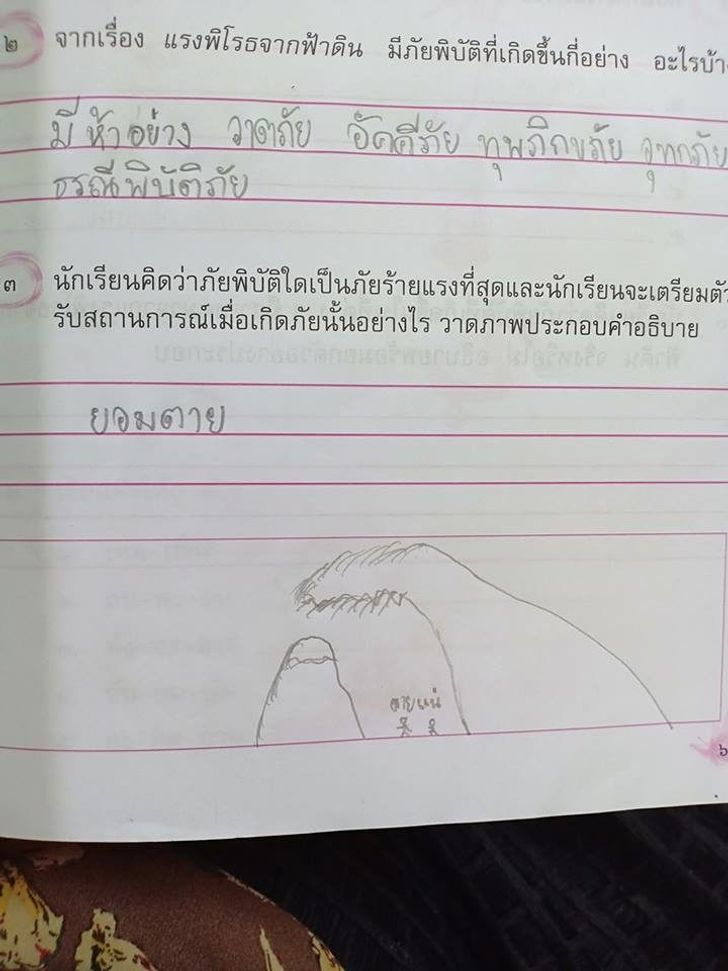 ๒ จากเรื่อง แรงพิโรธจากฟ้าดิน มีภัยพิบัติที่เกิดขึ้นกี่อย่าง อะไรบ้า
มี ห้าอย่าง วาตภัย อัคคีภัย ทุพภิกขภัย อุทกภัย
ธรณีพิบัติภัย
๓ นักเรียนคิดว่าภัยพิบัติใดเป็นภัยร้ายแรงที่สุดและนักเรียนจะเตรียมตัว
รับสถานการณ์เมื่อเกิดภัยนั้นอย่างไร วาดภาพประกอบคำอธิบาย
ยอมตาย
ตายแน่
๖